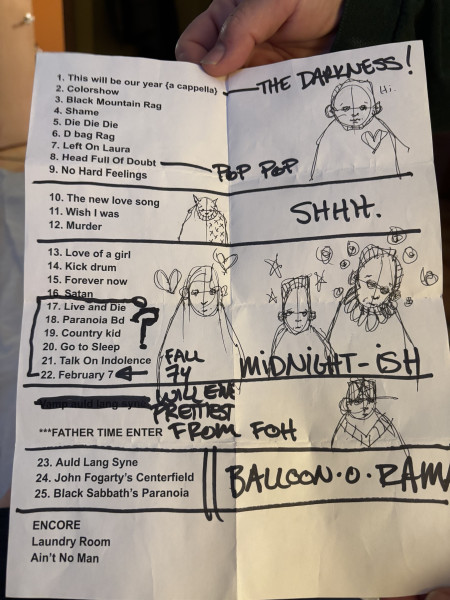 1. This will be our year {a cappella}
THE DARKNESS!
2. Colorshow
3. Black Mountain Rag
Hi.
4. Shame
5. Die Die Die
6. D bag Rag
7. Left On Laura
8. Head Full Of Doubt
POP POP
9. No Hard Feelings
10. The new love song
11. Wish I was
SHHH.
12. Murder
13. Love of a girl
14. Kick drum
15. Forever now
16. Satan
17. Live and Die
18. Paranoia Bd
?
19. Country kid
20. Go to Sleep
21. Talk On Indolence
FALL
MIDNIGHT-ISH
22. February 7
74
Vamp auld lang syne
PRETTIEST
***FATHER TIME ENTER
FROM FOH
23. Auld Lang Syne
24. John Fogarty's Centerfield
BALLOON·O·RAM
25. Black Sabbath's Paranoia
ENCORE
Laundry Room
Ain't No Man